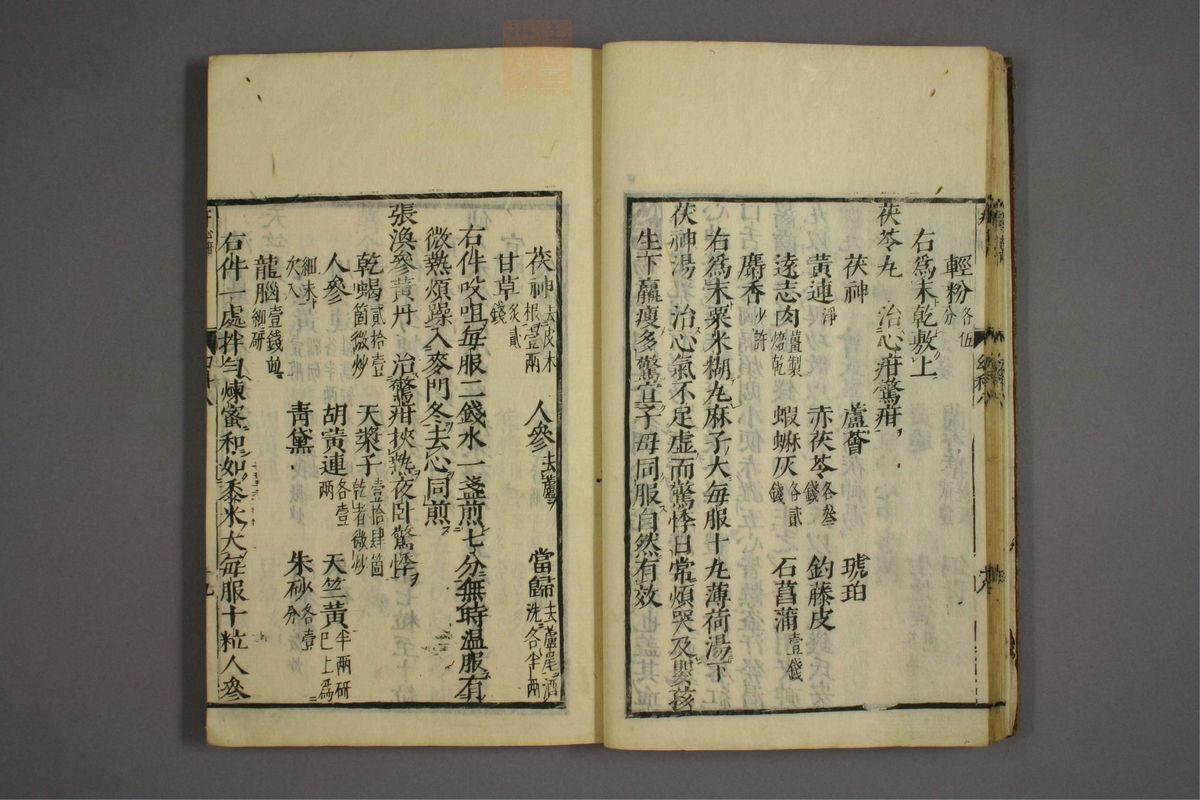 輕粉各伍分
右爲末乾敷上
茯苓丸 治心疳驚疳
茯神 蘆薈 琥珀
黃連淨 赤茯苓各叁錢 釣藤皮
遠志肉薑製焙乾 蝦蟆灰各貳錢 石菖蒲壹錢
麝香少許
右爲末粟米糊丸麻子大每服十丸薄荷湯下
茯神湯 治心氣不足虛而驚悸日常煩哭及嬰孩
生下羸瘦多驚宜子母同服自然有效
茯神去皮木根壹兩 人參去蘆 當歸去蘆尾酒洗各半兩
甘草炙貳錢
右件㕮咀每服二錢水一盞煎七分無時温服有
微熱煩躁入麥門冬去心同煎
張渙參黃丹 治驚疳挾熱夜卧驚悸
乾蝎貳拾壹箇微炒 天漿子壹拾肆箇乾者微炒
人參 胡黃連各壹兩 天竺黃半兩研巳上爲
細末次入 青黛 朱砂各壹分
龍腦壹錢細研
右件一處拌勻煉蜜和如黍米大每服十粒人參